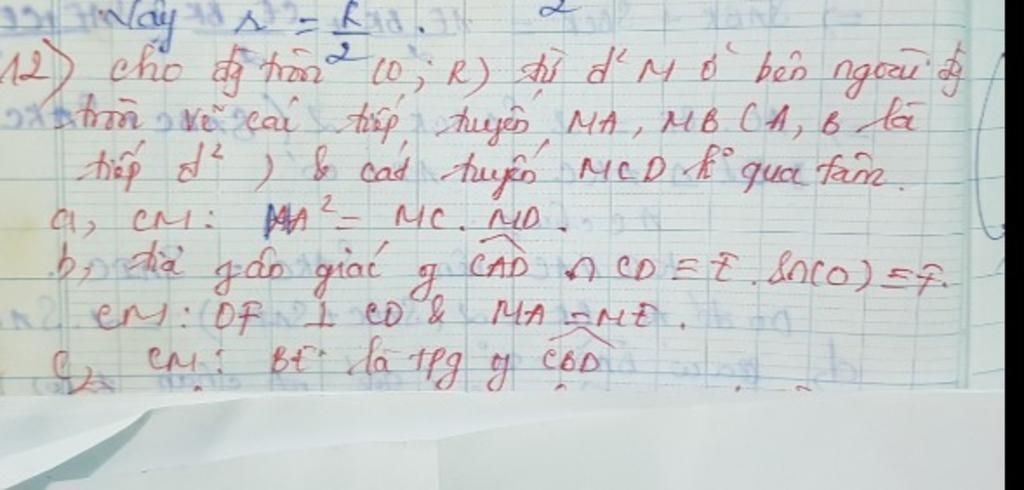 Vậy r = R/2.
12) Cho đg tròn (O; R) từ đ² M ở bên ngoài đg
tròn vẽ các tiếp tuyến MA, MB (A, B là
tiếp đ²) & cát tuyến MCD k° qua tâm.
a, CM: MA² = MC. MD.
b, tia g đô giác g CAD ∩ CD = E. & ∩ (O) = F.
CM: OF ⊥ CD & MA = ME.
c, CM: BE là tpg g CBD